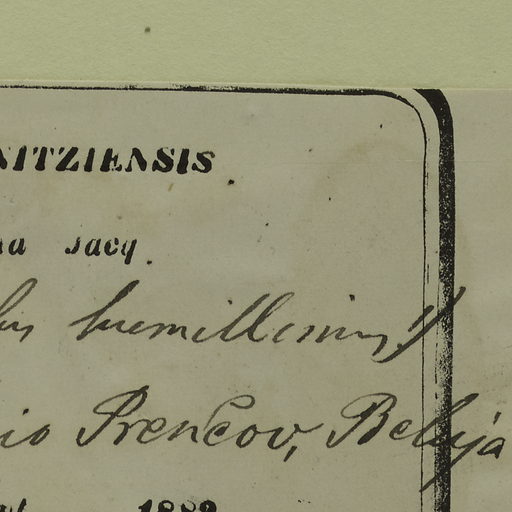 NITZIENSIS
na Jacq.
bus humillimus!)
io Prenčov, Beluja
1889